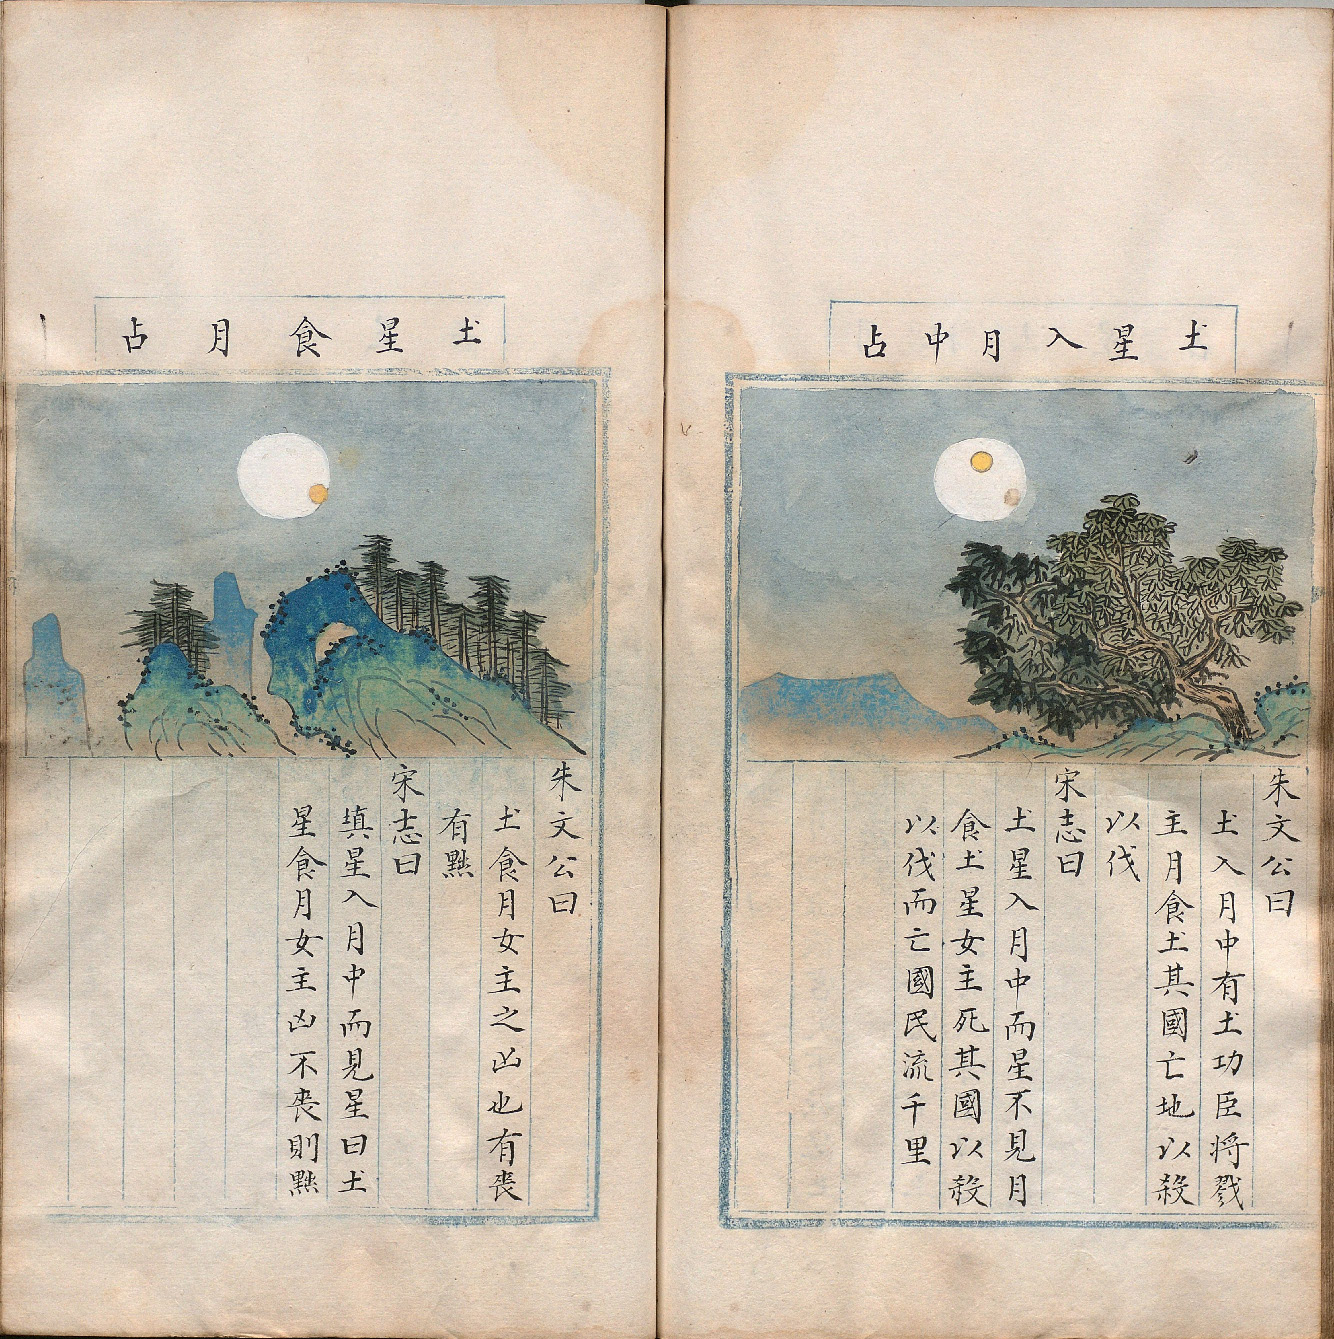 土星入月中占
朱文公曰
土入月中有土功臣將戮
主月食土其國亡地以殺
以伐
宋志曰
土星入月中而星不見月
食土星女主死其國以殺
以伐而亡國民流千里
土星食月占
朱文公曰
土食月女主之凶也有喪
有黜
宋志曰
填星入月中而見星曰土
星食月女主凶不喪則黜